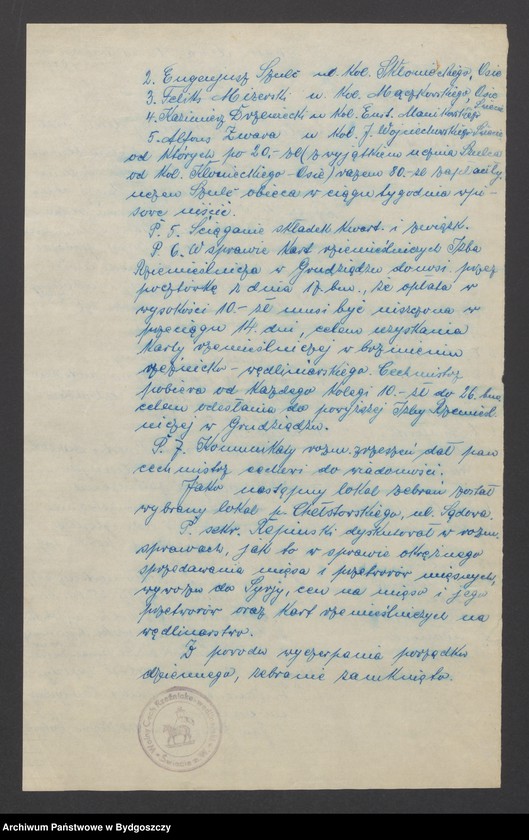 2. Eugenjusz Szulc ul. Kol. Skłonieckiego, Osie
3. Feliks Mizerski u. Kol. Mączkowskiego, Osie
4. Kazimierz Drzenicki u Kol. Emt. Manikowskiego Świecie
5. Alfons Zwara u Kol. J. Wojciechowskiego Świecie
od których po 20,- zł (z wyjątkiem ucznia Szulca
od Kol. Skłonieckiego - Osie) razem 80.- zł zapłacili,
uczeń Szulc obieca w ciągu tygodnia wpi-
sowe uiścić.
P. 5. Ściąganie składek kwart. i związk.
P. 6. W sprawie kart rzemieślniczych Izba
Rzemieślnicza w Grudziądzu donosi przez
pocztówkę z dnia 17 bm., że opłata w
wysokości 10.- zł musi być uiszczona w
przeciągu 14 dni, celem uzyskania
karty rzemieślniczej w brzmieniu
rzeźnicko - wędliniarskiego. Cechmistrz
pobiera od każdego kolegi 10.- zł do 26. bm.
celem odesłania do powyższej Izby Rzemieśl-
niczej w Grudziądzu.
P. 7. Komunikaty rozm. zrzeszeń dał pan
cechmistrz cechowi do wiadomości.
Jako następny lokal zebrań został
wybrany lokal p. Chełstowskiego, ul. Sądowa.
P. sekr. Rzepinski dyskutował w rozm.
sprawach, jak to w sprawie okrężnego
sprzedawania mięsa i przetworów mięsnych,
wywozu do Syrji, cen na mięso i jego
przetworów oraz kart rzemieślniczych na
wędliniarstwo.
Z powodu wyczerpania porządku
dziennego, zebranie zamknięto.
Cech Rzeźnicko-
Świecie n. W.
Archiwum Państwowe w Bydgoszczy